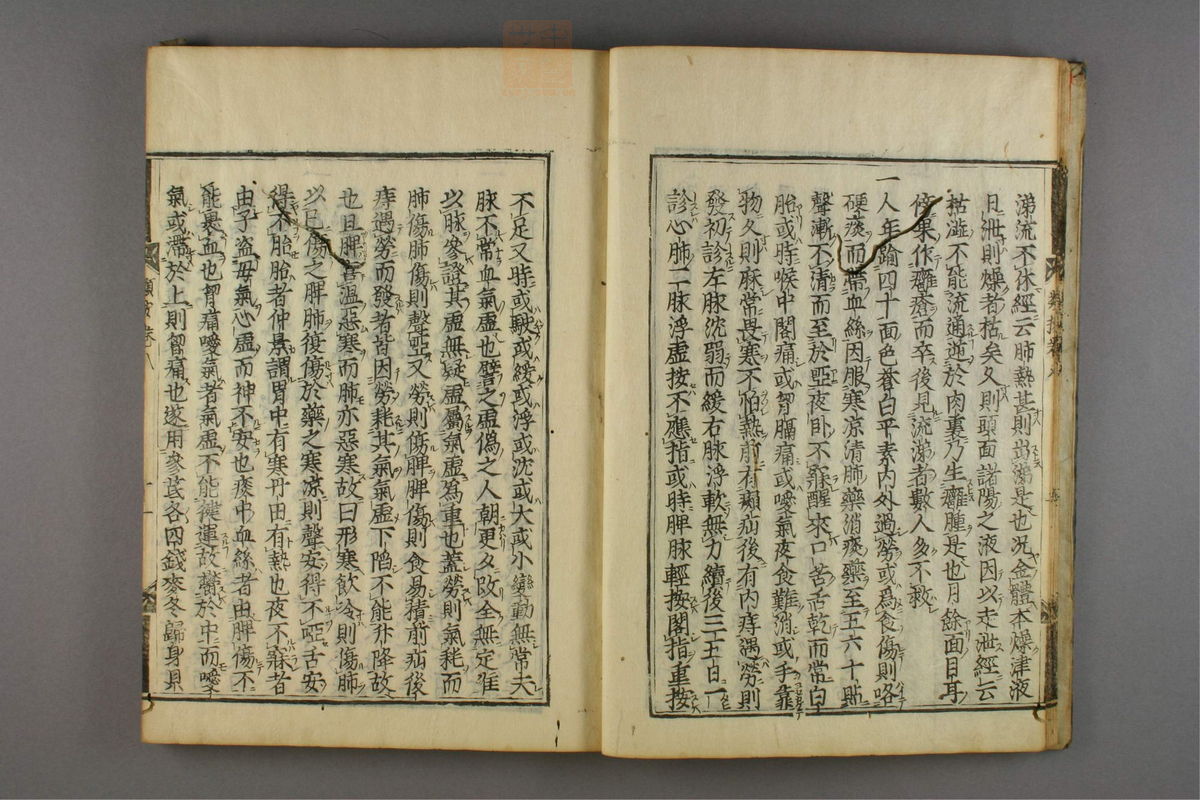 涕流不休經云肺熱甚則出涕是也況金體本燥津液
日泄則燥者枯矣久則頭面諸陽之液因以走泄經云
枯澁不能流通逆於肉裏乃生癰腫是也月餘面目耳
傍果作癰瘡而卒後見流涕者數人多不救
一人年踰四十面色蒼白平素內外過勞或爲食傷則咯
硬痰而帶血絲因服寒涼清肺藥消痰藥至五六十貼
聲漸不清而至於啞夜卧不寐醒來口苦舌乾而常白
胎或時喉中閣痛或胷膈痛或噯氣夜食難消或手靠
物久則麻常畏寒不怕熱前有癩疝後有內痔遇勞則
發初診左脉沈弱而緩右脉浮軟無力續後三五日一
診心肺二脉浮虛按不應指或時脾脉輕按閣指重按
不足又時或駃或緩或浮或沈或大或小變動無常夫
脉不常血氣虛也譬之虛僞之人朝更夕改全無定准
以脉參證其虛無疑虛屬氣虛爲重也蓋勞則氣耗而
肺傷肺傷則聲啞又勞則傷脾脾傷則食易積前疝後
痔遇勞而發者皆因勞耗其氣氣虛下陷不能升降故
也且脾喜溫惡寒而肺亦惡寒故曰形寒飲冷則傷肺
以已傷之脾肺復傷於藥之寒凉則聲安得不啞舌安
得不胎胎者仲景謂胃中有寒丹田有熱也夜不寐者
由子盜母氣心虛而神不安也痰中血絲者由脾傷不
能裹血也胷痛噯氣者氣虛不能健運故鬱於中而噯
氣或滯於上則胷痛也遂用參芪各四錢麥冬歸身貝